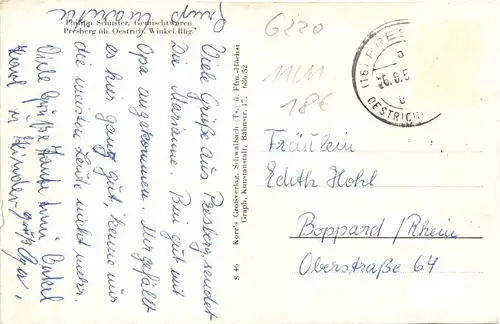 Philipp Schuster, Gemischtwaren
Presberg üb. Oestrich-Winkel Rhg.
Viele Grüße aus Presberg sendet
Die Marianne. Bin gut mit
Opa angekommen. Mir gefällt
es hier ganz gut, kenne nur
die meisten Leute nicht mehr.
Gruß
Marianne
Viele Grüße Tante Anni Onkel
Karl u. Kinder
S 46 Korr's Großverlag, Schwalbach (Ts.) ü. Ffm.-Höchst
Graph. Kunstanstalt, Bahnstr. 17, 689/52
6220
18€
(16) PRES
a
-6.8.5
c
OESTRICH-
Fräulein
Edith Hohl
Boppard/Rhein
Oberstraße 64